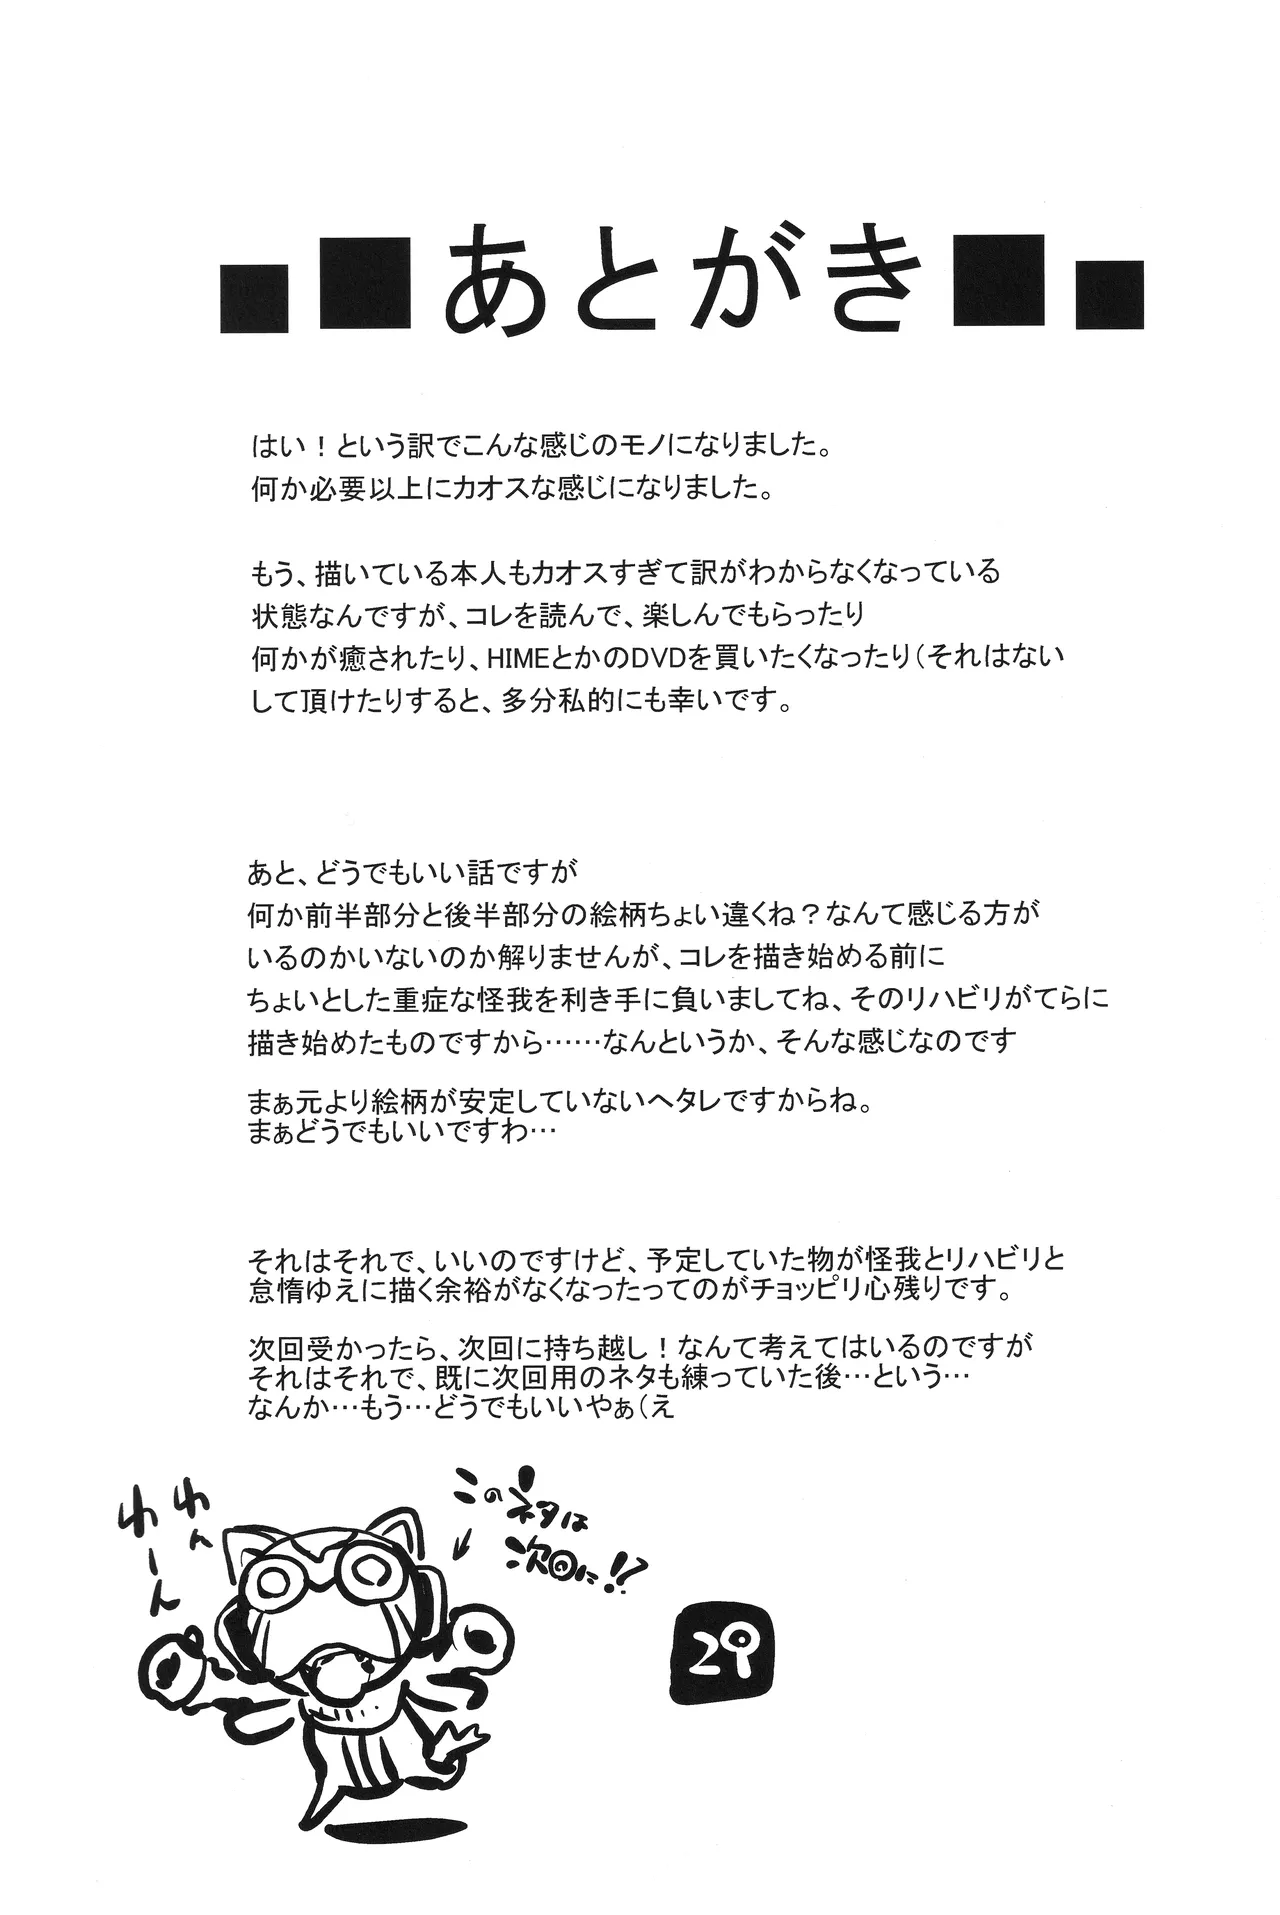 ■■あとがき■■
はい！という訳でこんな感じのモノになりました。
何か必要以上にカオスな感じになりました。
もう、描いている本人もカオスすぎて訳がわからなくなっている
状態なんですが、コレを読んで、楽しんでもらったり
何かが癒されたり、HIMEとかのDVDを買いたくなったり（それはない
して頂けたりすると、多分私的にも幸いです。
あと、どうでもいい話ですが
何か前半部分と後半部分の絵柄ちょい違くね？なんて感じる方が
いるのかいないのか解りませんが、コレを描き始める前に
ちょいとした重症な怪我を利き手に負いましてね、そのリハビリがてらに
描き始めたものですから……なんというか、そんな感じなのです
まぁ元より絵柄が安定していないヘタレですからね。
まぁどうでもいいですわ…
それはそれで、いいのですけど、予定していた物が怪我とリハビリと
怠惰ゆえに描く余裕がなくなったってのがチョッピリ心残りです。
次回受かったら、次回に持ち越し！なんて考えてはいるのですが
それはそれで、既に次回用のネタも練っていた後…という…
なんか…もう…どうでもいいやぁ（え
わん
わーん
このネタは
次回に!!
29